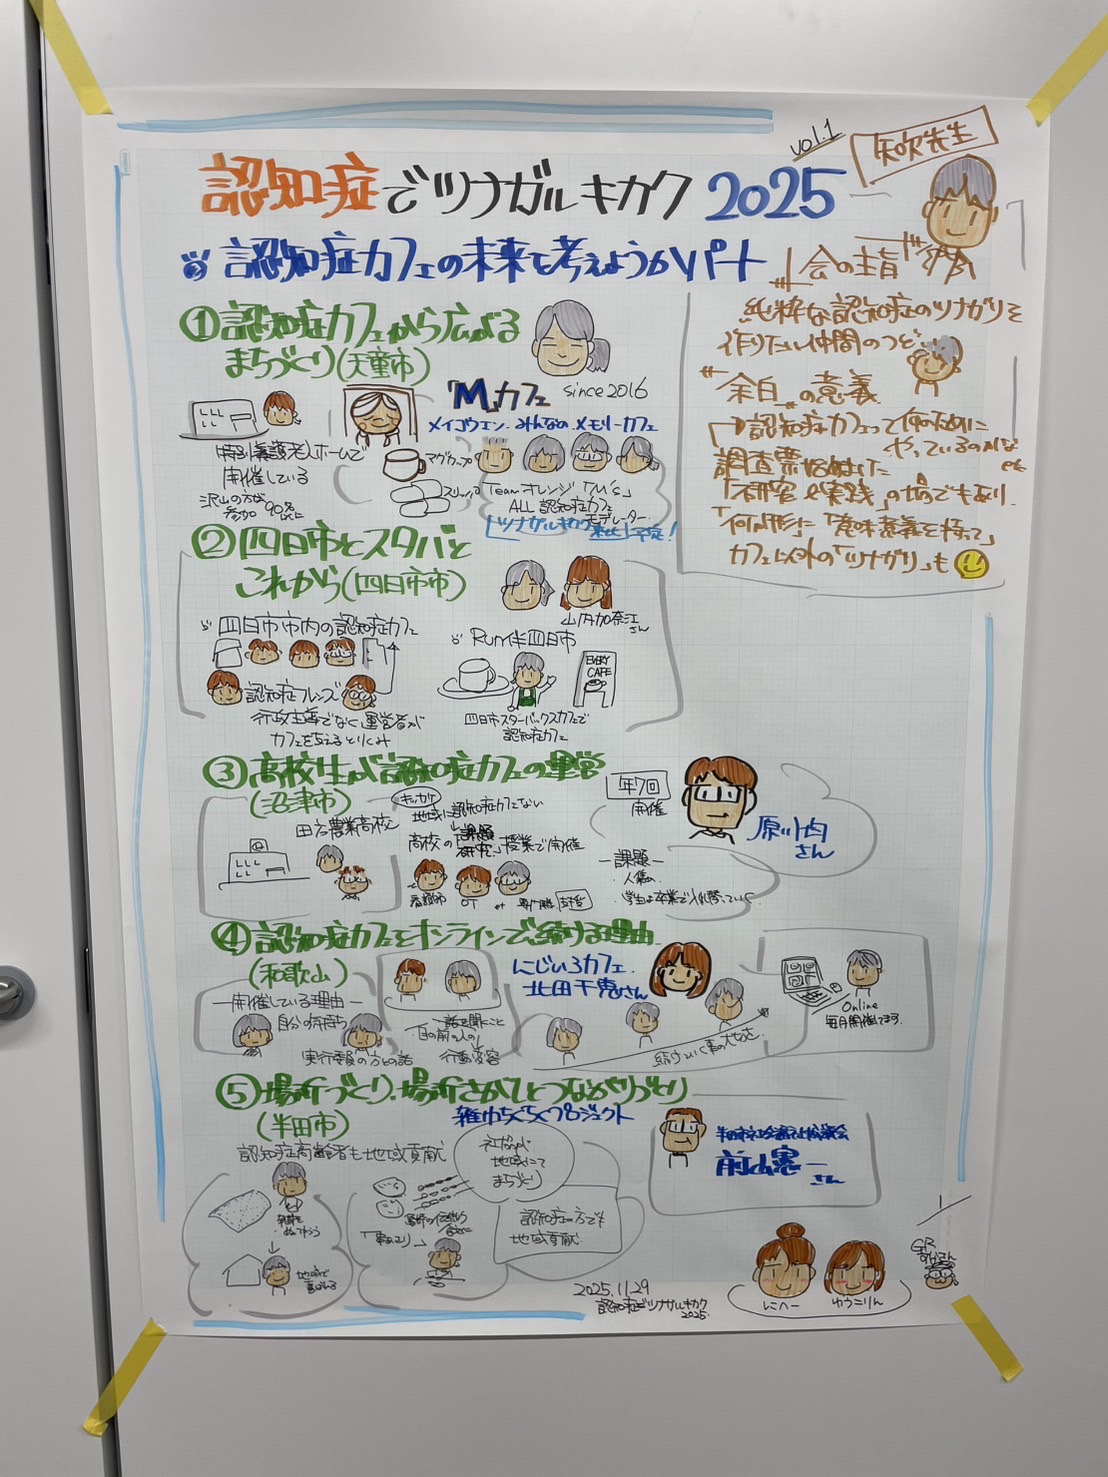 vol.1
矢吹先生
認知症でツナガルキカク 2025
認知症カフェの未来を考えようかパート
会の主旨
純粋な認知症のツナガリを
作りたい仲間のつどい
"余白"の意義
認知症カフェって何のために
やっているのかな
「研究&実践」の場でもあり
カフェ以外の「ツナガリ」も
①認知症カフェから広がる
まちづくり(天童市)
「M」カフェ since 2016
メイゴウエン・みんなの・メモリーカフェ
特別養護老人ホームで
開催している
沢山の方が
参加 90名
マグカップ
スリッパ
Teamオレンジ「M's」
ALL 認知症カフェ
モデレーター
ツナガルキカク
②四日市とスタバと
これから(四日市市)
山内加奈江
さん
四日市市内の認知症カフェ
認知症フレンズ
行政主導でなく運営者が
カフェを支えるとりくみ
Run伴四日市
EVERY
CAFE
四日市スターバックスカフェで
認知症カフェ
③高校生が認知症カフェの運営
(沼津市)
田方農業高校
キッカケ
地域に認知症カフェない
高校の「課題
研究」授業で開催
看護師 OT
年7回
開催
原川内
さん
ー課題ー
・人集め
・学生は卒業で入れ替っていく
④認知症カフェをオンラインで続ける理由
(和歌山)
にじいろカフェ
北田千恵さん
ー開催している理由ー
自分の気持ち
実行委員の方との話
話を聞くこと
目の前の人の
行動変容
続けていく事の大切さ
Online
毎月開催してます
⑤場所づくり・場所さがしとつながりづくり
(半田市)
雑巾ちくちくプロジェクト
認知症高齢者も地域貢献
社協が
地域にて
まちづくり
認知症の方でも
地域貢献
半田市社会福祉協議会
前山憲一
さん
2025.11.29
認知症でツナガルキカク
2025
にへー
ゆうこりん
GR